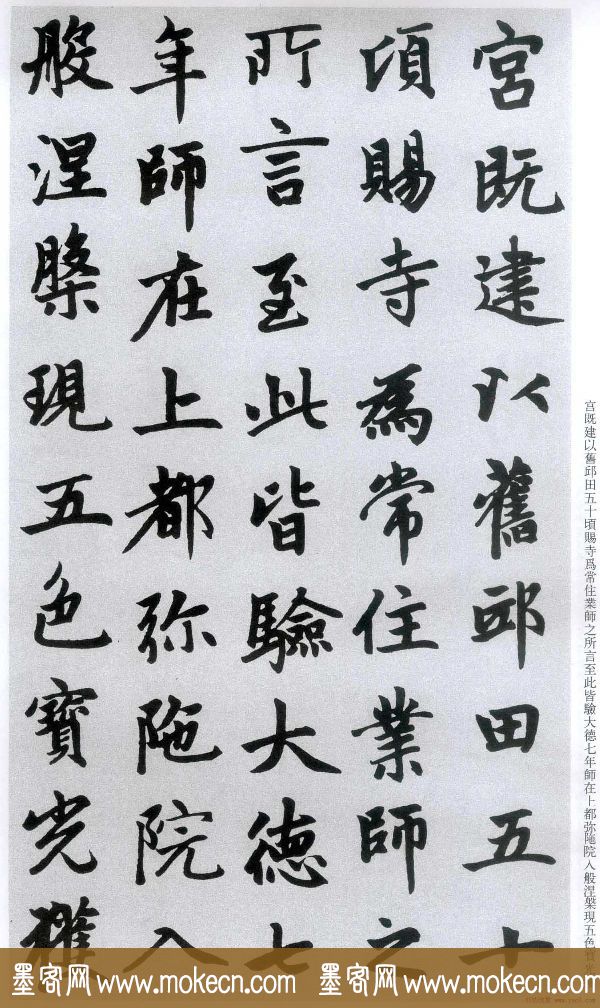 宮既建以舊邱田五十
頃賜寺為常住業師之
所言至此皆驗大德七
年師在上都弥陁院入
般涅槃現五色寶光獲
宫既建以舊邱田五十頃賜寺爲常住業師之所言至此皆驗大德七年師在上都弥陁院入般涅槃現五色寶光
墨客网 www.mokecn.com 墨客网 www.mokecn.com